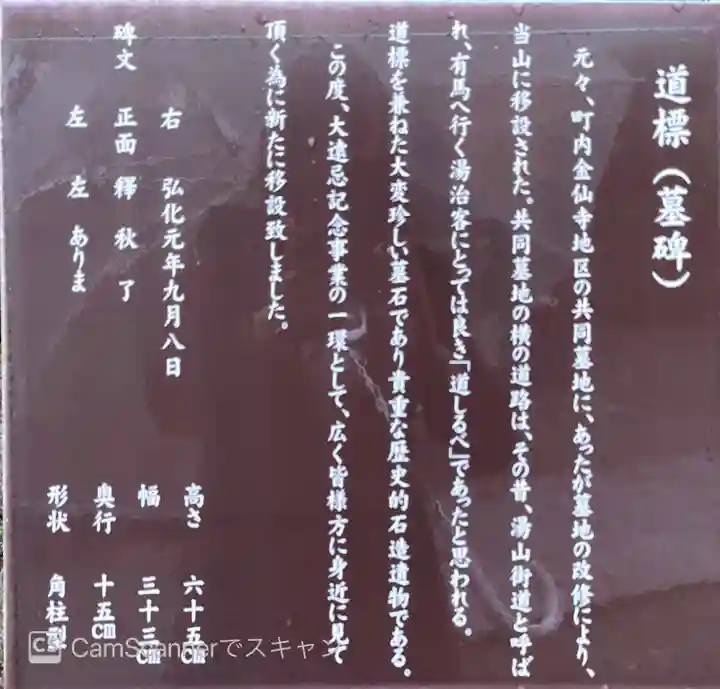 道標（墓碑）
元々、町内金仙寺地区の共同墓地に、あったが墓地の改修により、
当山に移設された。共同墓地の横の道路は、その昔、湯山街道と呼ば
れ、有馬へ行く湯治客にとっては良き「道しるべ」であったと思われる。
道標を兼ねた大変珍しい墓石であり貴重な歴史的石造遺物である。
この度、大遠忌記念事業の一環として、広く皆様方に身近に見て
頂く為に新たに移設致しました。
右 弘化元年九月八日
碑文 正面 釋 秋 了
左 左 ありま
高さ 六十五㎝
幅 三十三㎝
奥行 十五㎝
形状 角柱型
CS CamScannerでスキャン